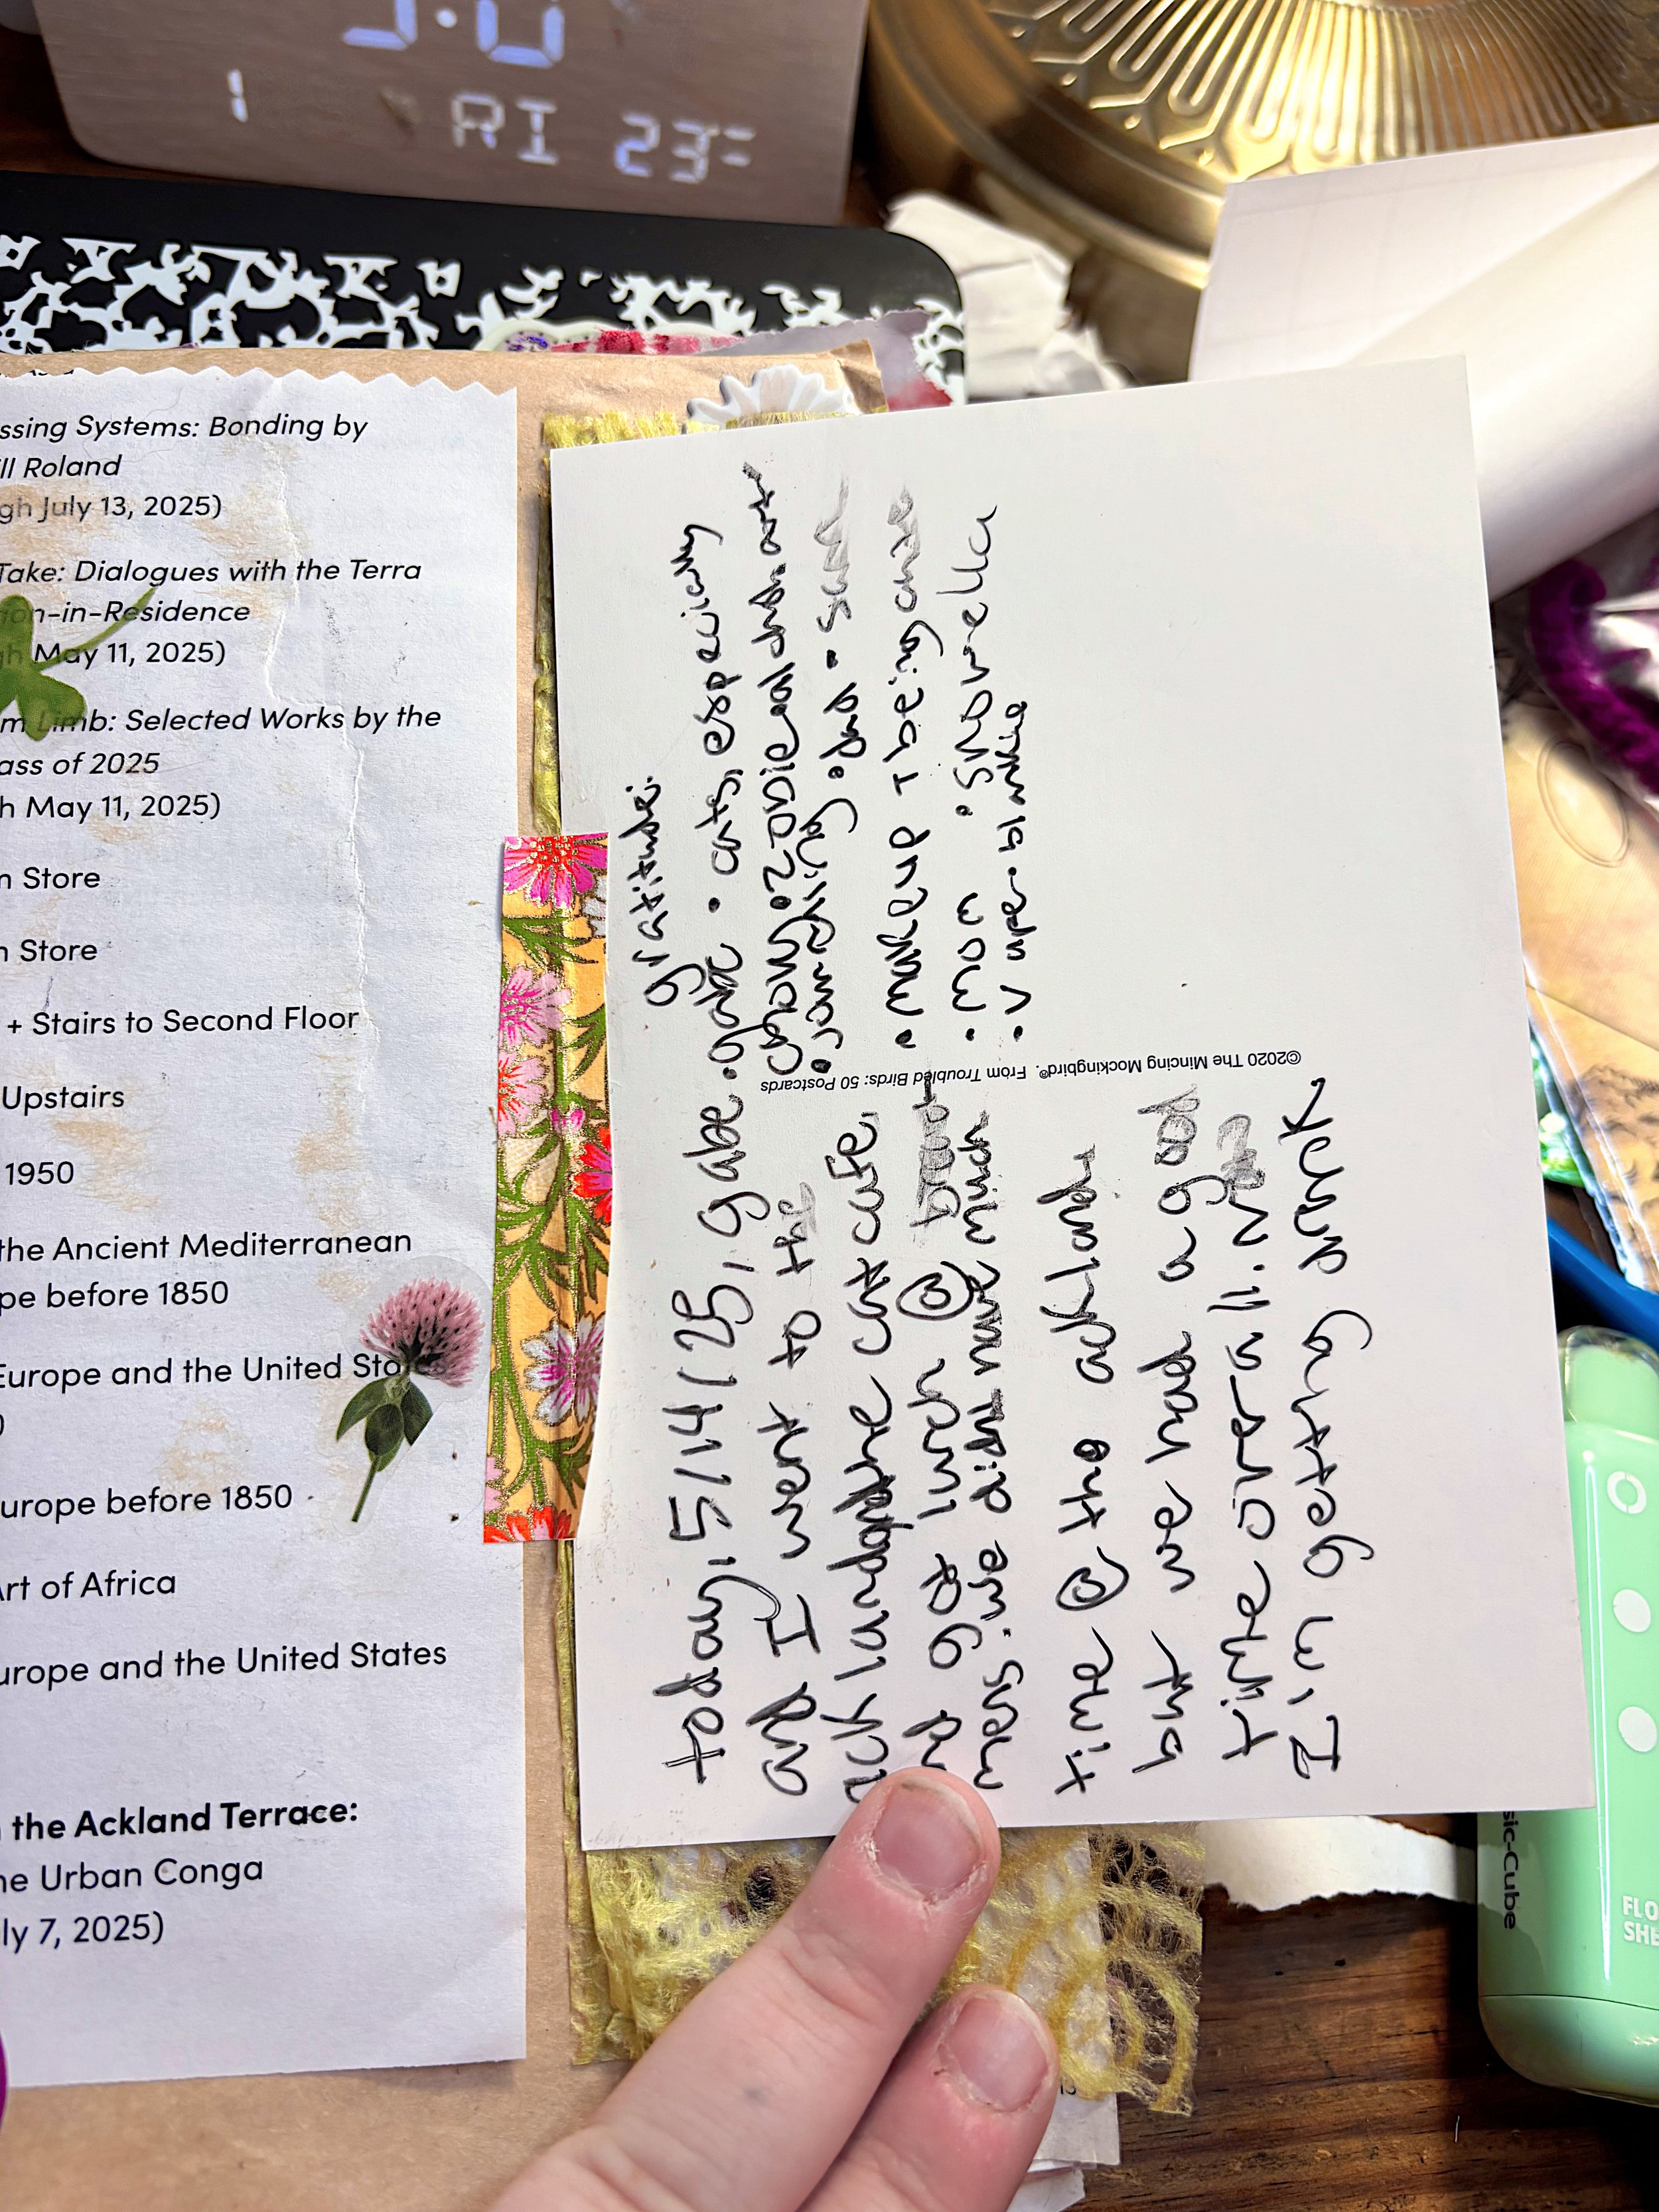 1 RI 23
ssing Systems: Bonding by
ll Roland
gh July 13, 2025)
Take: Dialogues with the Terra
ion-in-Residence
gh May 11, 2025)
m Limb: Selected Works by the
ass of 2025
h May 11, 2025)
n Store
n Store
+ Stairs to Second Floor
Upstairs
1950
the Ancient Mediterranean
pe before 1850
Europe and the United Sta
urope before 1850
Art of Africa
urope and the United States
the Ackland Terrace:
he Urban Conga
ly 7, 2025)
today, 5/14/25, gabe
and I went to the
ack land and the cat cafe,
got lunch @
meas. we didnt have much
time @ the ackland
but we had a good
time overall. n
I'm getting drunk
gratitude:
• gabe • arts, especially
• yummy food • and • sun
• makeup + being cute
• mom • sabrvella
• vape • blankie
©2020 The Mincing Mockingbird®. From Troubled Birds: 50 Postcards
sic-Cube
FLO
SHE